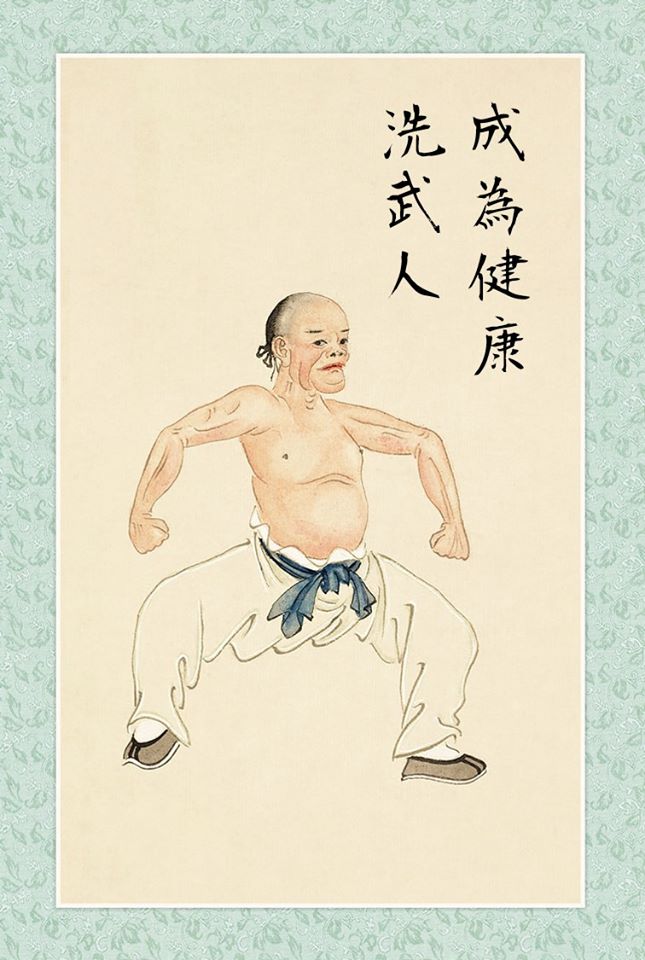 成為健康
洗武人